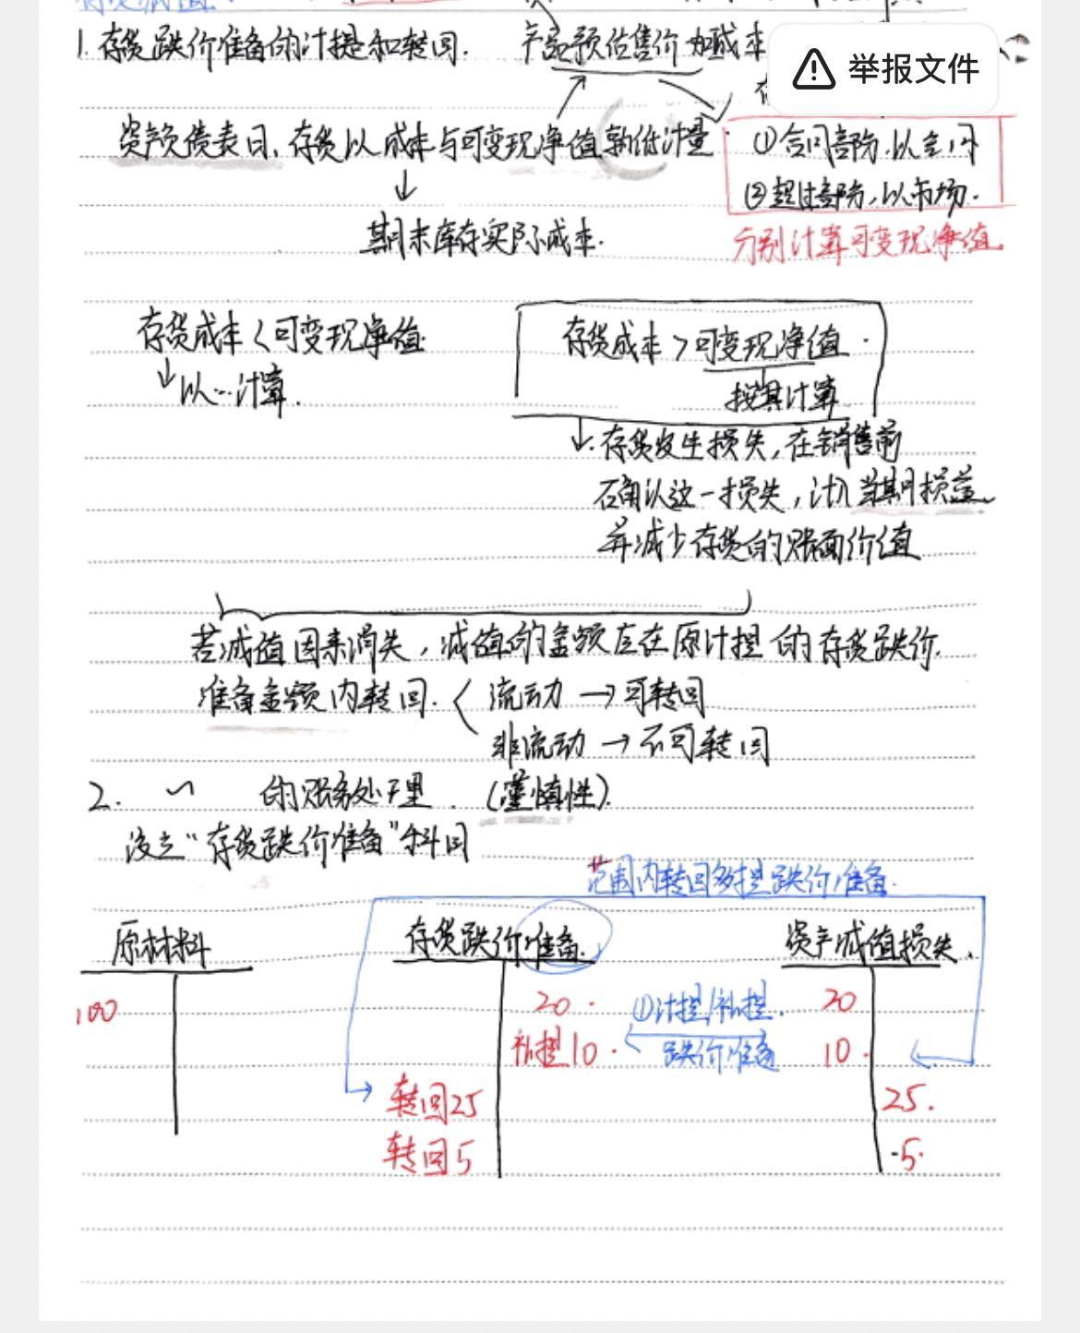 存货减值
1. 存货跌价准备的计提和转回.
产品预估售价 加成本
举报文件
资产负债表日、存货以成本与可变现净值孰低计量
①合同部分,以合同
②超过部分,以市场.
期末库存实际成本.
分别计算可变现净值
存货成本<可变现净值
存货成本>可变现净值
以…计算.
按其计算
存货发生损失,在销售前
确认这一损失,计入当期损益
并减少存货的账面价值
若减值因素消失,减值的金额应在原计提的存货跌价
准备金额内转回.
流动→可转回
非流动→不可转回
2. 〃 的账务处理.(谨慎性).
设立“存货跌价准备”科目
范围内转回多提跌价准备.
原材料
存货跌价准备.
资产减值损失.
100
20
①计提/补提
20
补提10
跌价准备
10
转回25
25.
转回5
5.